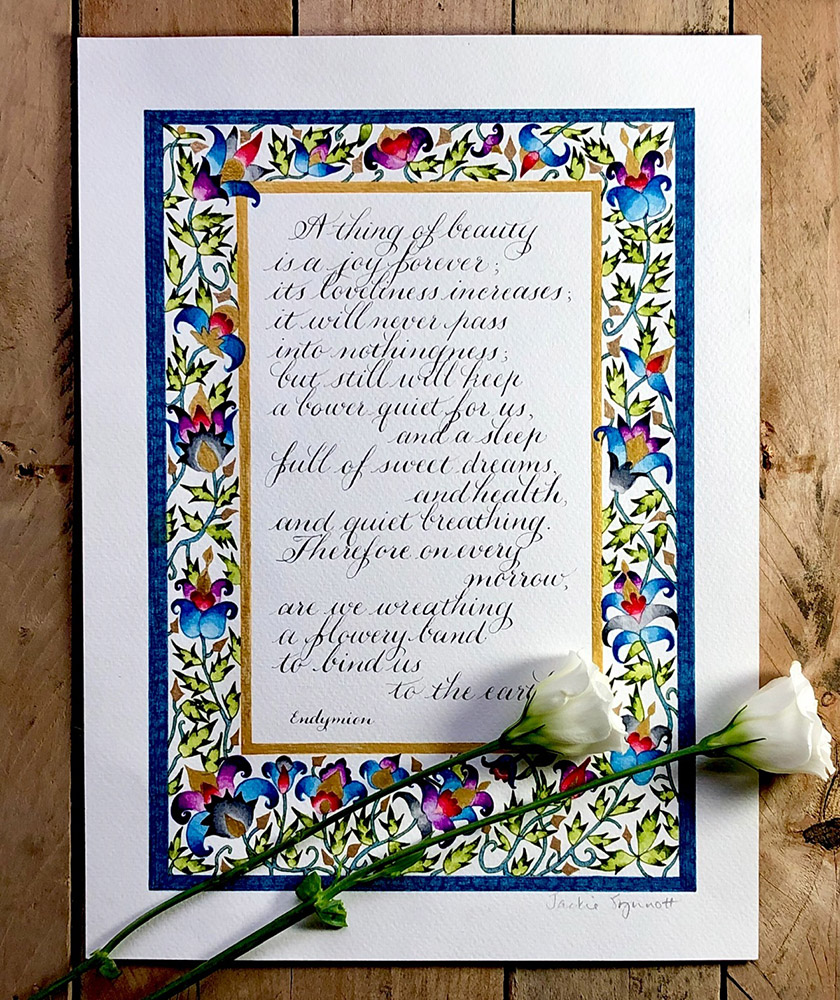 A thing of beauty
is a joy forever;
its loveliness increases;
it will never pass
into nothingness;
but still will keep
a bower quiet for us,
and a sleep
full of sweet dreams,
and health,
and quiet breathing.
Therefore on every
morrow,
are we wreathing
a flowery band
to bind us
to the
Endymion
Jackie